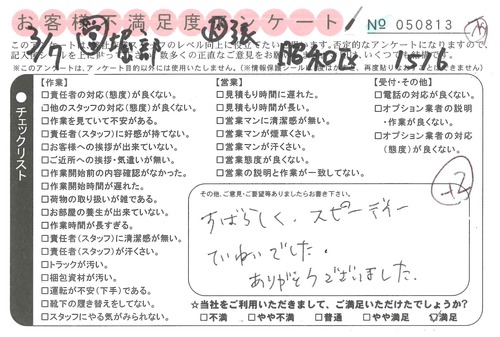 お客様不満足度アンケート
№ 050813
責任者の対応(態度)が良くない。
3/7
【作業】
□責任者の対応(態度)が良くない。
□他のスタッフの対応(態度)が良くない。
□作業を見ていて不安がある。
□責任者(スタッフ)に好感が持てない。
□お客様への挨拶が出来ていない。
□ご近所への挨拶・気遣いが無い。
□作業開始前の内容確認がなかった。
□作業開始時間が遅れた。
□荷物の取り扱いが雑である。
□お部屋の養生が出来ていない。
□作業時間が長すぎる。
□責任者(スタッフ)に清潔感が無い。
□責任者(スタッフ)が汗くさい。
□トラックが汚い。
□梱包資材が汚い。
□運転が不安(下手)である。
□靴下の履き替えをしてない。
□スタッフにやる気がみられない。
【営業】
□見積もり時間に遅れた。
□見積もり時間が長い。
□営業マンに清潔感が無い。
□営業マンが煙草くさい。
□営業マンが汗くさい。
□営業態度が良くない。
□営業の説明と作業が一致してない。
【受付・その他】
□電話の対応が良くない。
□オプション業者の説明
・作業が良くない。
□オプション業者の対応
(態度)が良くない。
●チェックリスト
その他、ご意見・ご要望等ありましたらお書き下さい。
すばらしく、スピーディー
ていねいでした。
ありがとうございました。
☆当社をご利用いただきまして、ご満足いただけたでしょうか?
□不満 □やや不満 □普通 □やや満足 ☑満足